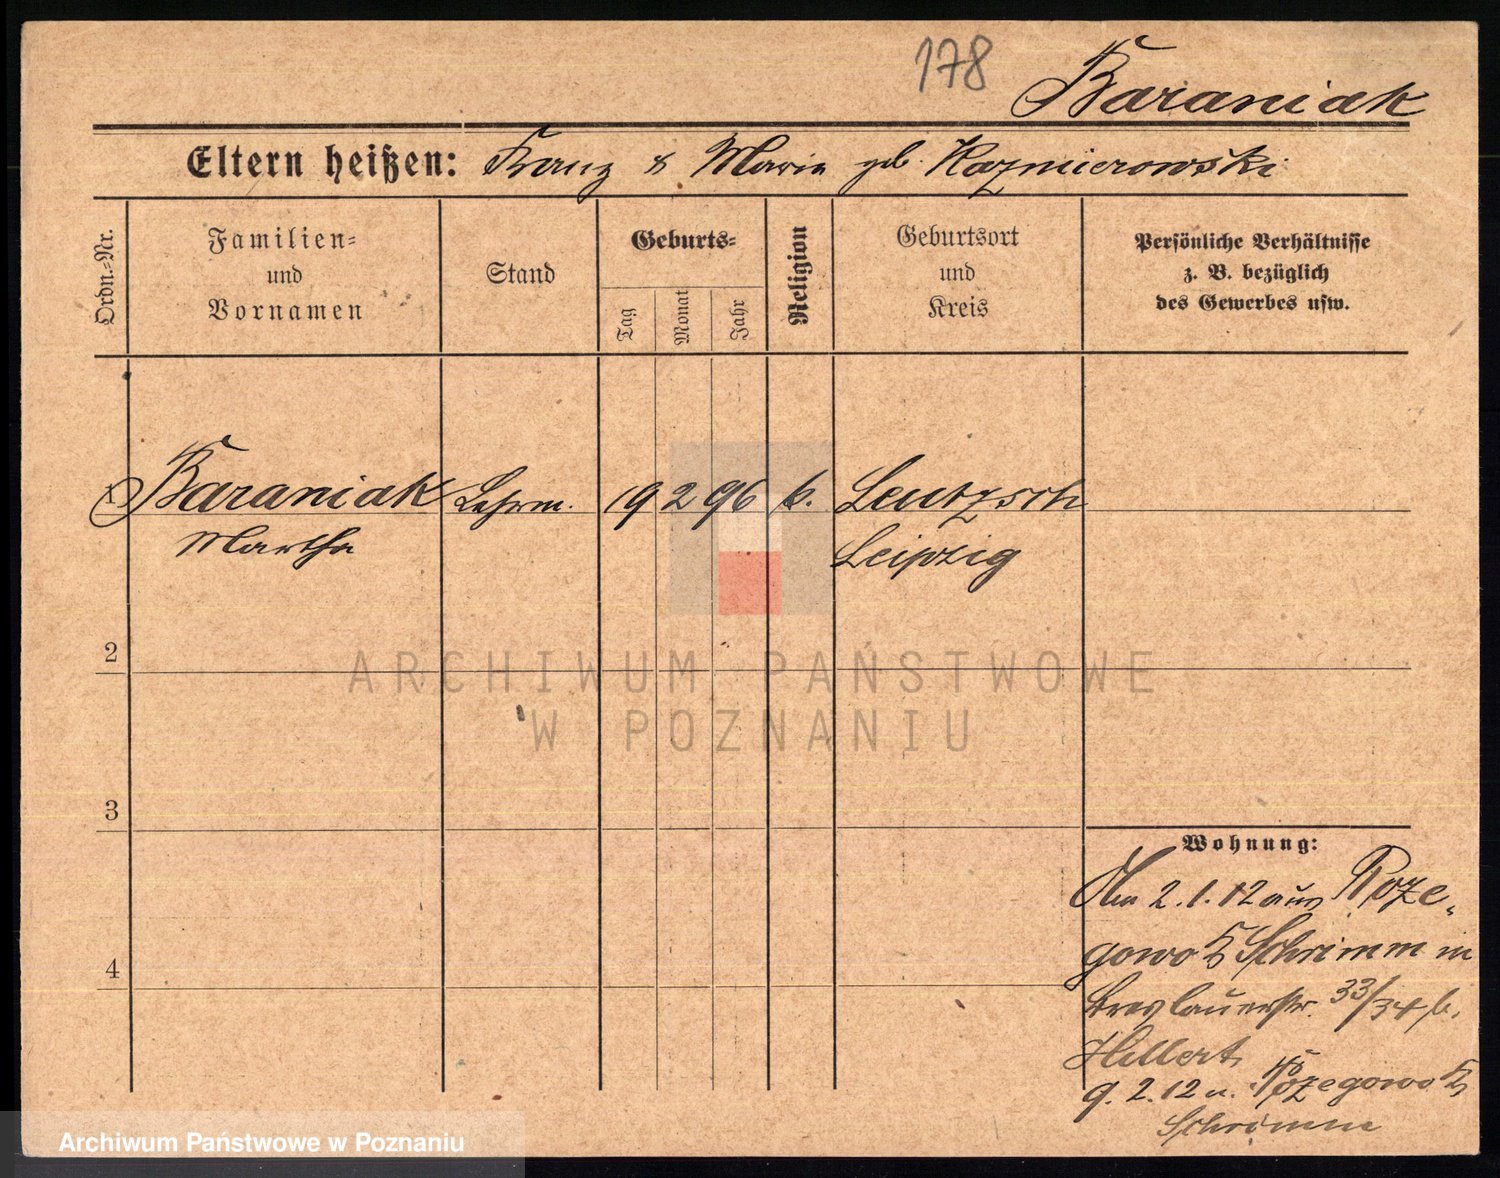 178
Baraniak
Eltern heißen: Franz & Marie geb. Kazmierowski
Ordn.-Nr.
Familien-
und
Vornamen
Stand
Geburts-
Tag
Monat
Jahr
Religion
Geburtsort
und
Kreis
Persönliche Verhältnisse
z. B. bezüglich
des Gewerbes usw.
1 Baraniak Lehrm. 19 2 96 k. Leutzsch
Martha Leipzig
2
ARCHIWUM PAŃSTWOWE
W POZNANIU
3
Wohnung:
Am 2.1.12 aus Roze-
gowo Schrimm in
Breslauerstr. 33/34 b.
Hillert
9.2.12 n. Rozegowo
Schrimm
4
Archiwum Państwowe w Poznaniu